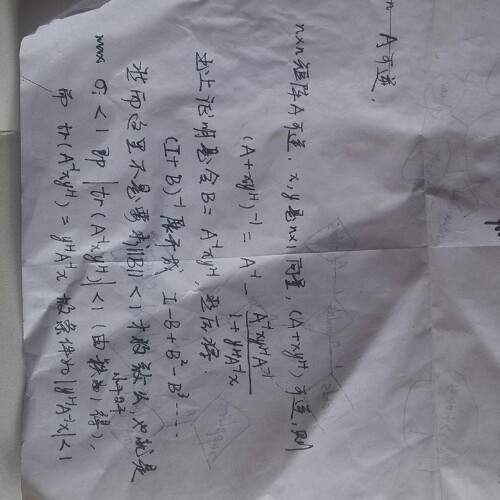 n－A可逆.
n×n矩阵A可逆. x, y是n×1向量, (A+xyᴴ)可逆, 则
(A+xyᴴ)⁻¹ = A⁻¹ - A⁻¹xyᴴA⁻¹ / 1+yᴴA⁻¹x
书上证明是令B=A⁻¹xyᴴ, 然后将
(I+B)⁻¹展开成 I-B+B²-B³.....
然而这里不是要求||B||<1才收敛么, 也就是
max σᵢ<1 即 |tr(A⁻¹xyᴴ)|<1 (由秩为1得),
即 tr(A⁻¹xyᴴ)=yᴴA⁻¹x 的条件为|yᴴA⁻¹x|<1